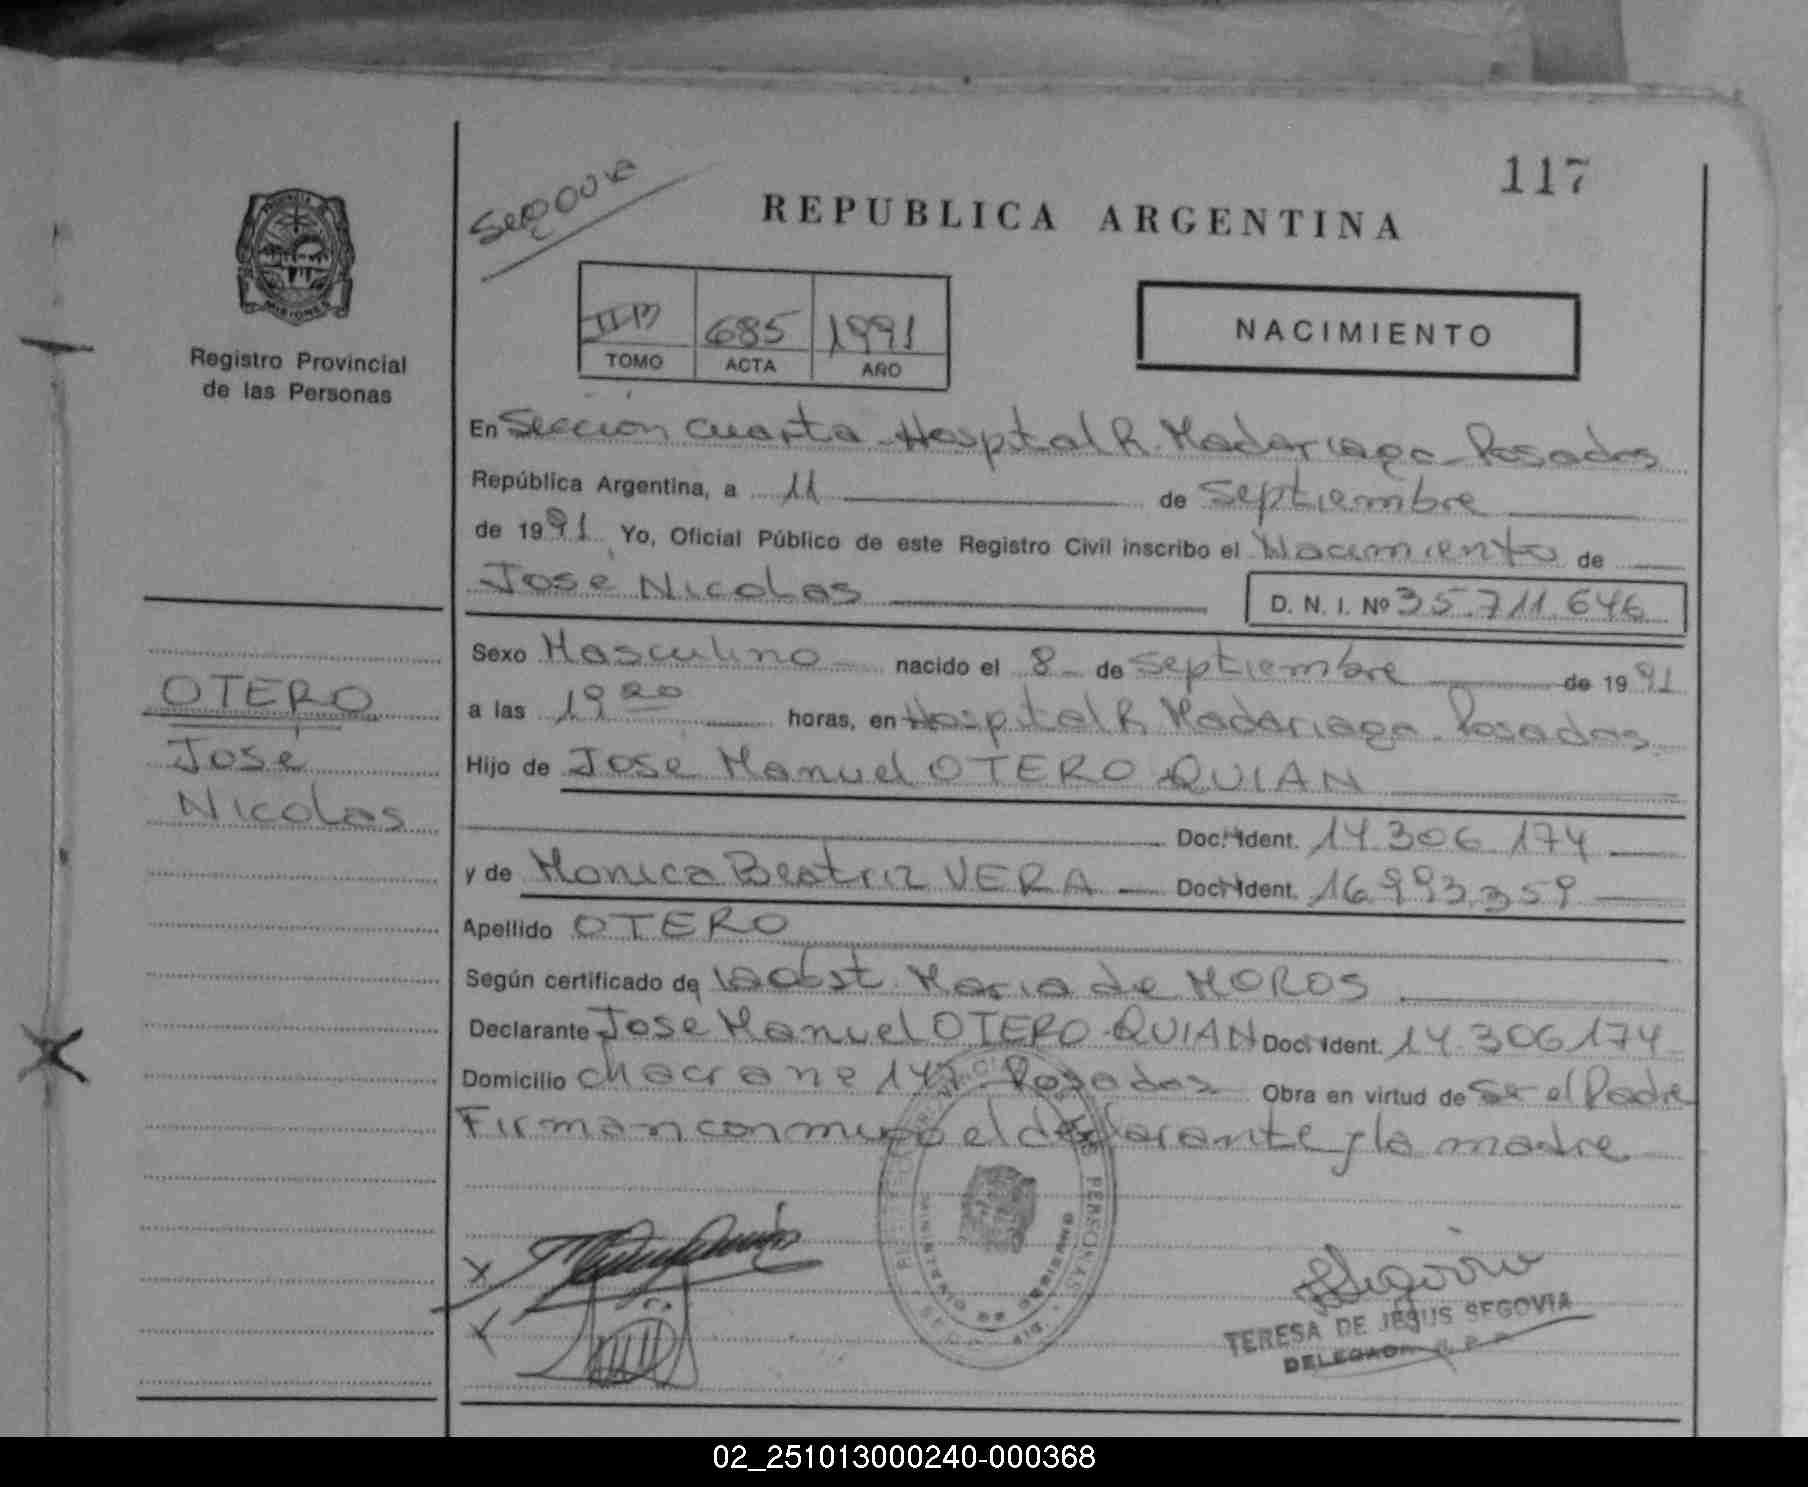 117
Segovia
REPUBLICA ARGENTINA
MISIONES
Registro Provincial
de las Personas
685 1991
TOMO ACTA AÑO
NACIMIENTO
En Sección cuarta - Hospital R. Madariaga - Posadas
República Argentina, a 11 de Septiembre
de 1991 Yo, Oficial Público de este Registro Civil inscribo el Nacimiento de
José Nicolas D. N. I. Nº 35.711.646
Sexo Masculino nacido el 8 de Septiembre de 1991
a las 19 20 horas, en Hospital R. Madariaga - Posadas
Hijo de José Manuel OTERO QUIAN
Doc. Ident. 14.306.174
y de Monica Beatriz VERA Doc. Ident. 16.993.359
Apellido OTERO
Según certificado de la Obst. Maria de MOROS
Declarante Jose Manuel OTERO QUIAN Doc. Ident. 14.306.174
Domicilio chacra nº 147 - Posadas Obra en virtud de Ser el Padre
Firman conmigo el declarante y la madre
OTERO
José
Nicolas
PERSONAS
Segovia
TERESA DE JESUS SEGOVIA
DELEGADA
02_251013000240-000368